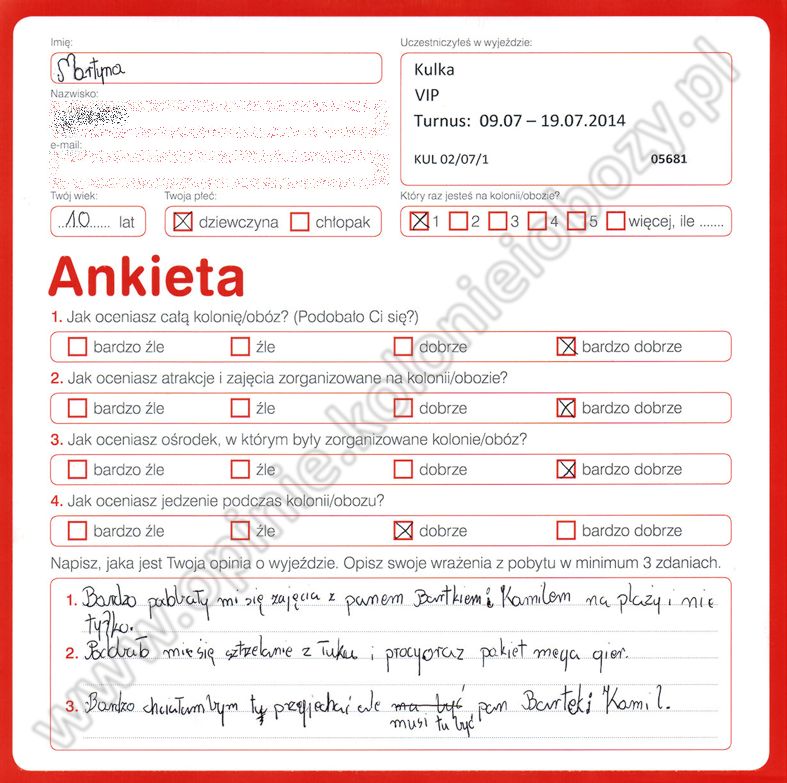 Imię:
Martyna
Nazwisko:
e-mail:
Twój wiek:
..10...... lat
Twoja płeć:
dziewczyna chłopak
Uczestniczyłeś w wyjeździe:
Kulka
VIP
Turnus: 09.07 – 19.07.2014
KUL 02/07/1 05681
Który raz jesteś na kolonii/obozie?
1 2 3 4 5 więcej, ile .......
Ankieta
1. Jak oceniasz całą kolonię/obóz? (Podobało Ci się?)
bardzo źle źle dobrze bardzo dobrze
2. Jak oceniasz atrakcje i zajęcia zorganizowane na kolonii/obozie?
bardzo źle źle dobrze bardzo dobrze
3. Jak oceniasz ośrodek, w którym były zorganizowane kolonie/obóz?
bardzo źle źle dobrze bardzo dobrze
4. Jak oceniasz jedzenie podczas kolonii/obozu?
bardzo źle źle dobrze bardzo dobrze
Napisz, jaka jest Twoja opinia o wyjeździe. Opisz swoje wrażenia z pobytu w minimum 3 zdaniach.
1. Bardzo mi się zajęcia z panem Bartkiem i Kamilem na plaży i nie
tylko.
2. mi się strzelanie z łuku i pakiet mega gier.
3. Bardzo tu przyjechać ale ma być pan Bartek i Kamil.
musi tu być
www.opinie.kolonieiobozy.pl